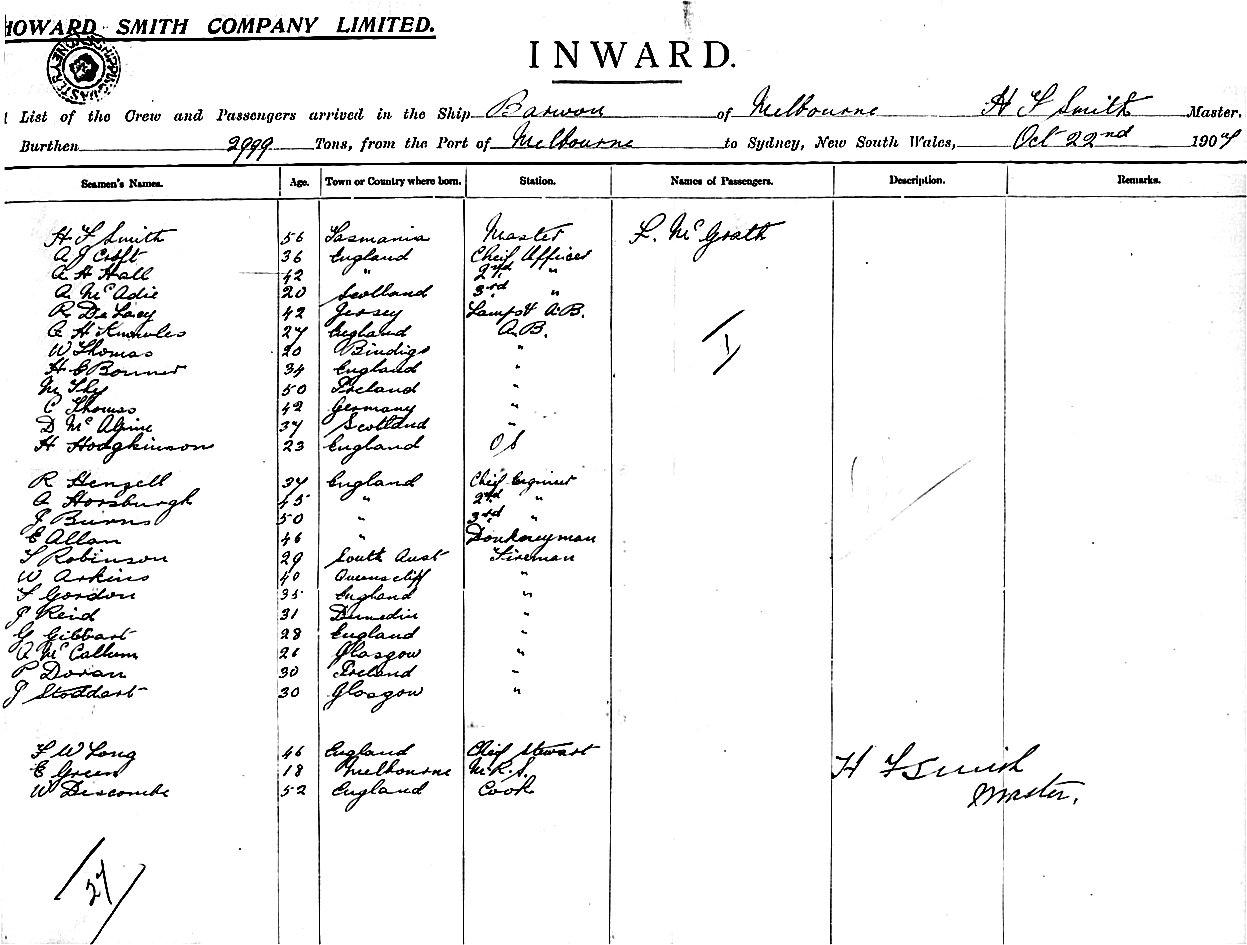 HOWARD SMITH COMPANY LIMITED.
INWARD.
List of the Crew and Passengers arrived in the Ship Barwon of Melbourne H F Smith Master,
Burthen 2999 Tons, from the Port of Melbourne to Sydney, New South Wales, Oct 22nd 1907
Seamen's Names. Age. Town or Country where born. Station. Names of Passengers. Description. Remarks.
H F Smith 56 Tasmania Master L. McGrath
A J Croft 36 England Cheif Officer
A H Hall 42 " 2nd "
A McAdie 20 Scotland 3rd "
R De Lacy 42 Jersey Lamps & A.B.
A H Knowles 27 England A.B.
W Thomas 20 "
H C Bonner 34 England "
M 50 Ireland "
C Thomas 42 Germany "
D McAlpine 37 Scotland "
H Hodgkinson 23 England OS
1
R Henzell 37 England Cheif Engineer
A Horsburgh 45 " 2nd "
J Burns 50 " 3rd "
E Allan 46 " Donkeyman
F Robinson 29 South Aust Fireman
W Arkins 40 Queenscliff "
F Gordon 35 England "
J Reid 31 Dunedin "
G Gibbart 28 England "
A McCallum 26 Glasgow "
P Doran 30 Ireland "
J Stoddart 30 Glasgow "
F W Long 46 England Chief Stewart
E Green 18 Melbourne M.R.S.
W Discombe 52 England Cook
H F Smith
Master.
27